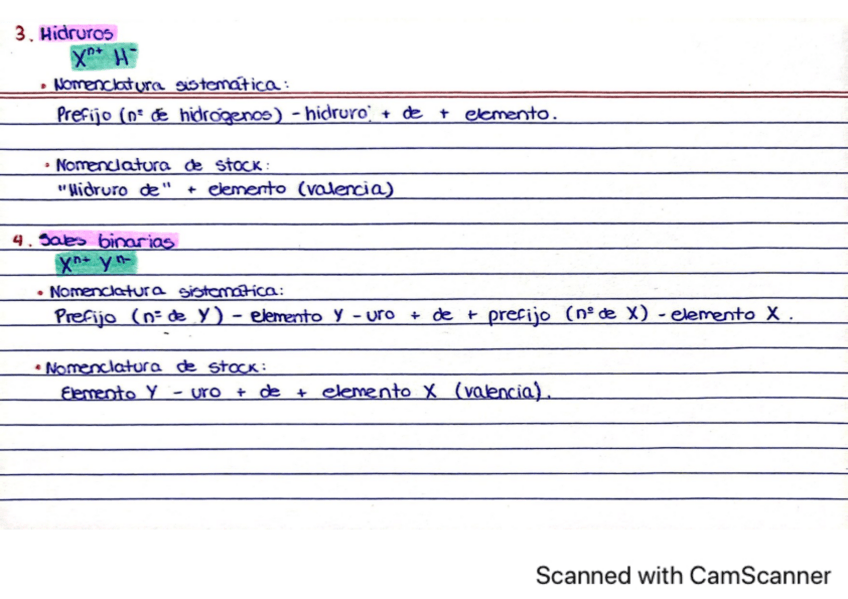 3. Hidruros
Xⁿ⁺ H⁻
• Nomenclatura sistemática:
Prefijo (nº de hidrógenos) - hidruro + de + elemento.
• Nomenclatura de stock:
"Hidruro de" + elemento (valencia)
4. Sales binarias
Xⁿ⁺ Yⁿ⁻
• Nomenclatura sistemática:
Prefijo (nº de Y) - elemento Y - uro + de + prefijo (nº de X) - elemento X.
• Nomenclatura de stock:
Elemento Y - uro + de + elemento X (valencia).
Scanned with CamScanner